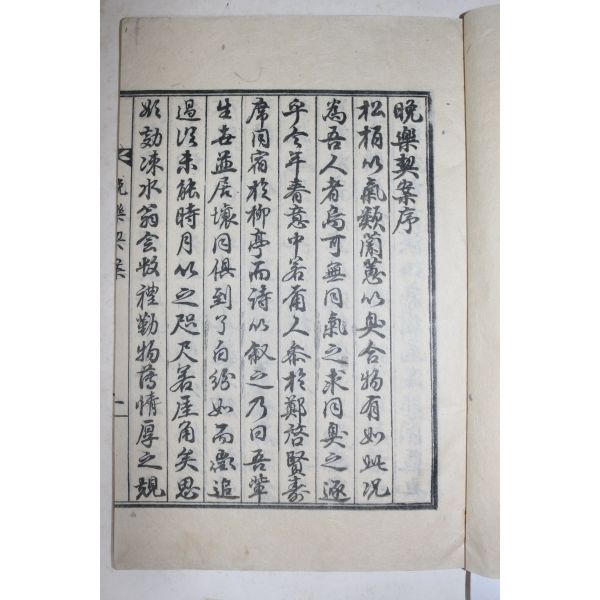 晚樂契案序
松栢以氣類蘭蕙以臭合物有如此况
爲吾人者烏可無同氣之求同臭之逐
乎今年春意中若而人參於鄭啓賢壽
席同宿於柳亭而詩以叙之乃曰吾輩
生世並居壤同俱到了白紛如而歡追
過從未能時月以之咫尺若厓角矣思
効涑水翁會數禮勤物薄情厚之規
晚樂契案
一